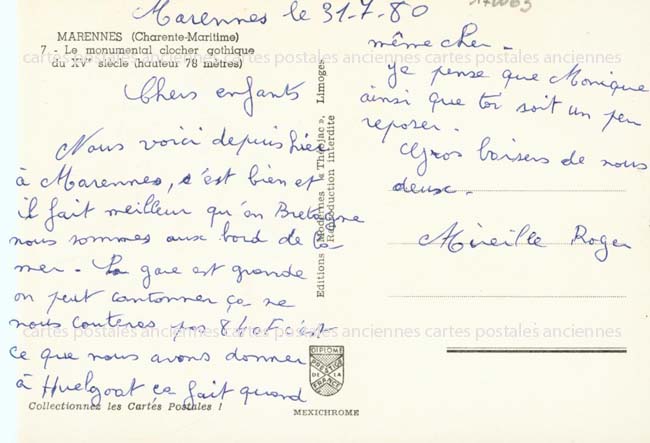 Marennes le 31-7-80
MARENNES (Charente-Maritime)
7 - Le monumental clocher gothique
du XVe siècle (hauteur 78 mètres)
Chers enfants
Nous voici depuis hier
à Marennes, c'est bien et
il fait meilleur qu'en Bretagne
nous sommes aux bord de la
mer - La gare est grande
on peut cantonner ça ne
nous couteres pas c'est
ce que nous avons donner
à Huelgoat ça fait quand
même cher -
Je pense que Monique
ainsi que toi soit un peu
reposer.
Gros baisers de nous
deux.
Mireille Roger
Editions Modernes « Théojac », Limoges
Reproduction interdite
DIPLOME
PRESTIGE
DE LA
FRANCE
Collectionnez les Cartes Postales !
MEXICHROME
cartes postales anciennes cartes postales anciennes cartes postales anciennes
cartes postales anciennes cartes postales anciennes cartes postales anciennes